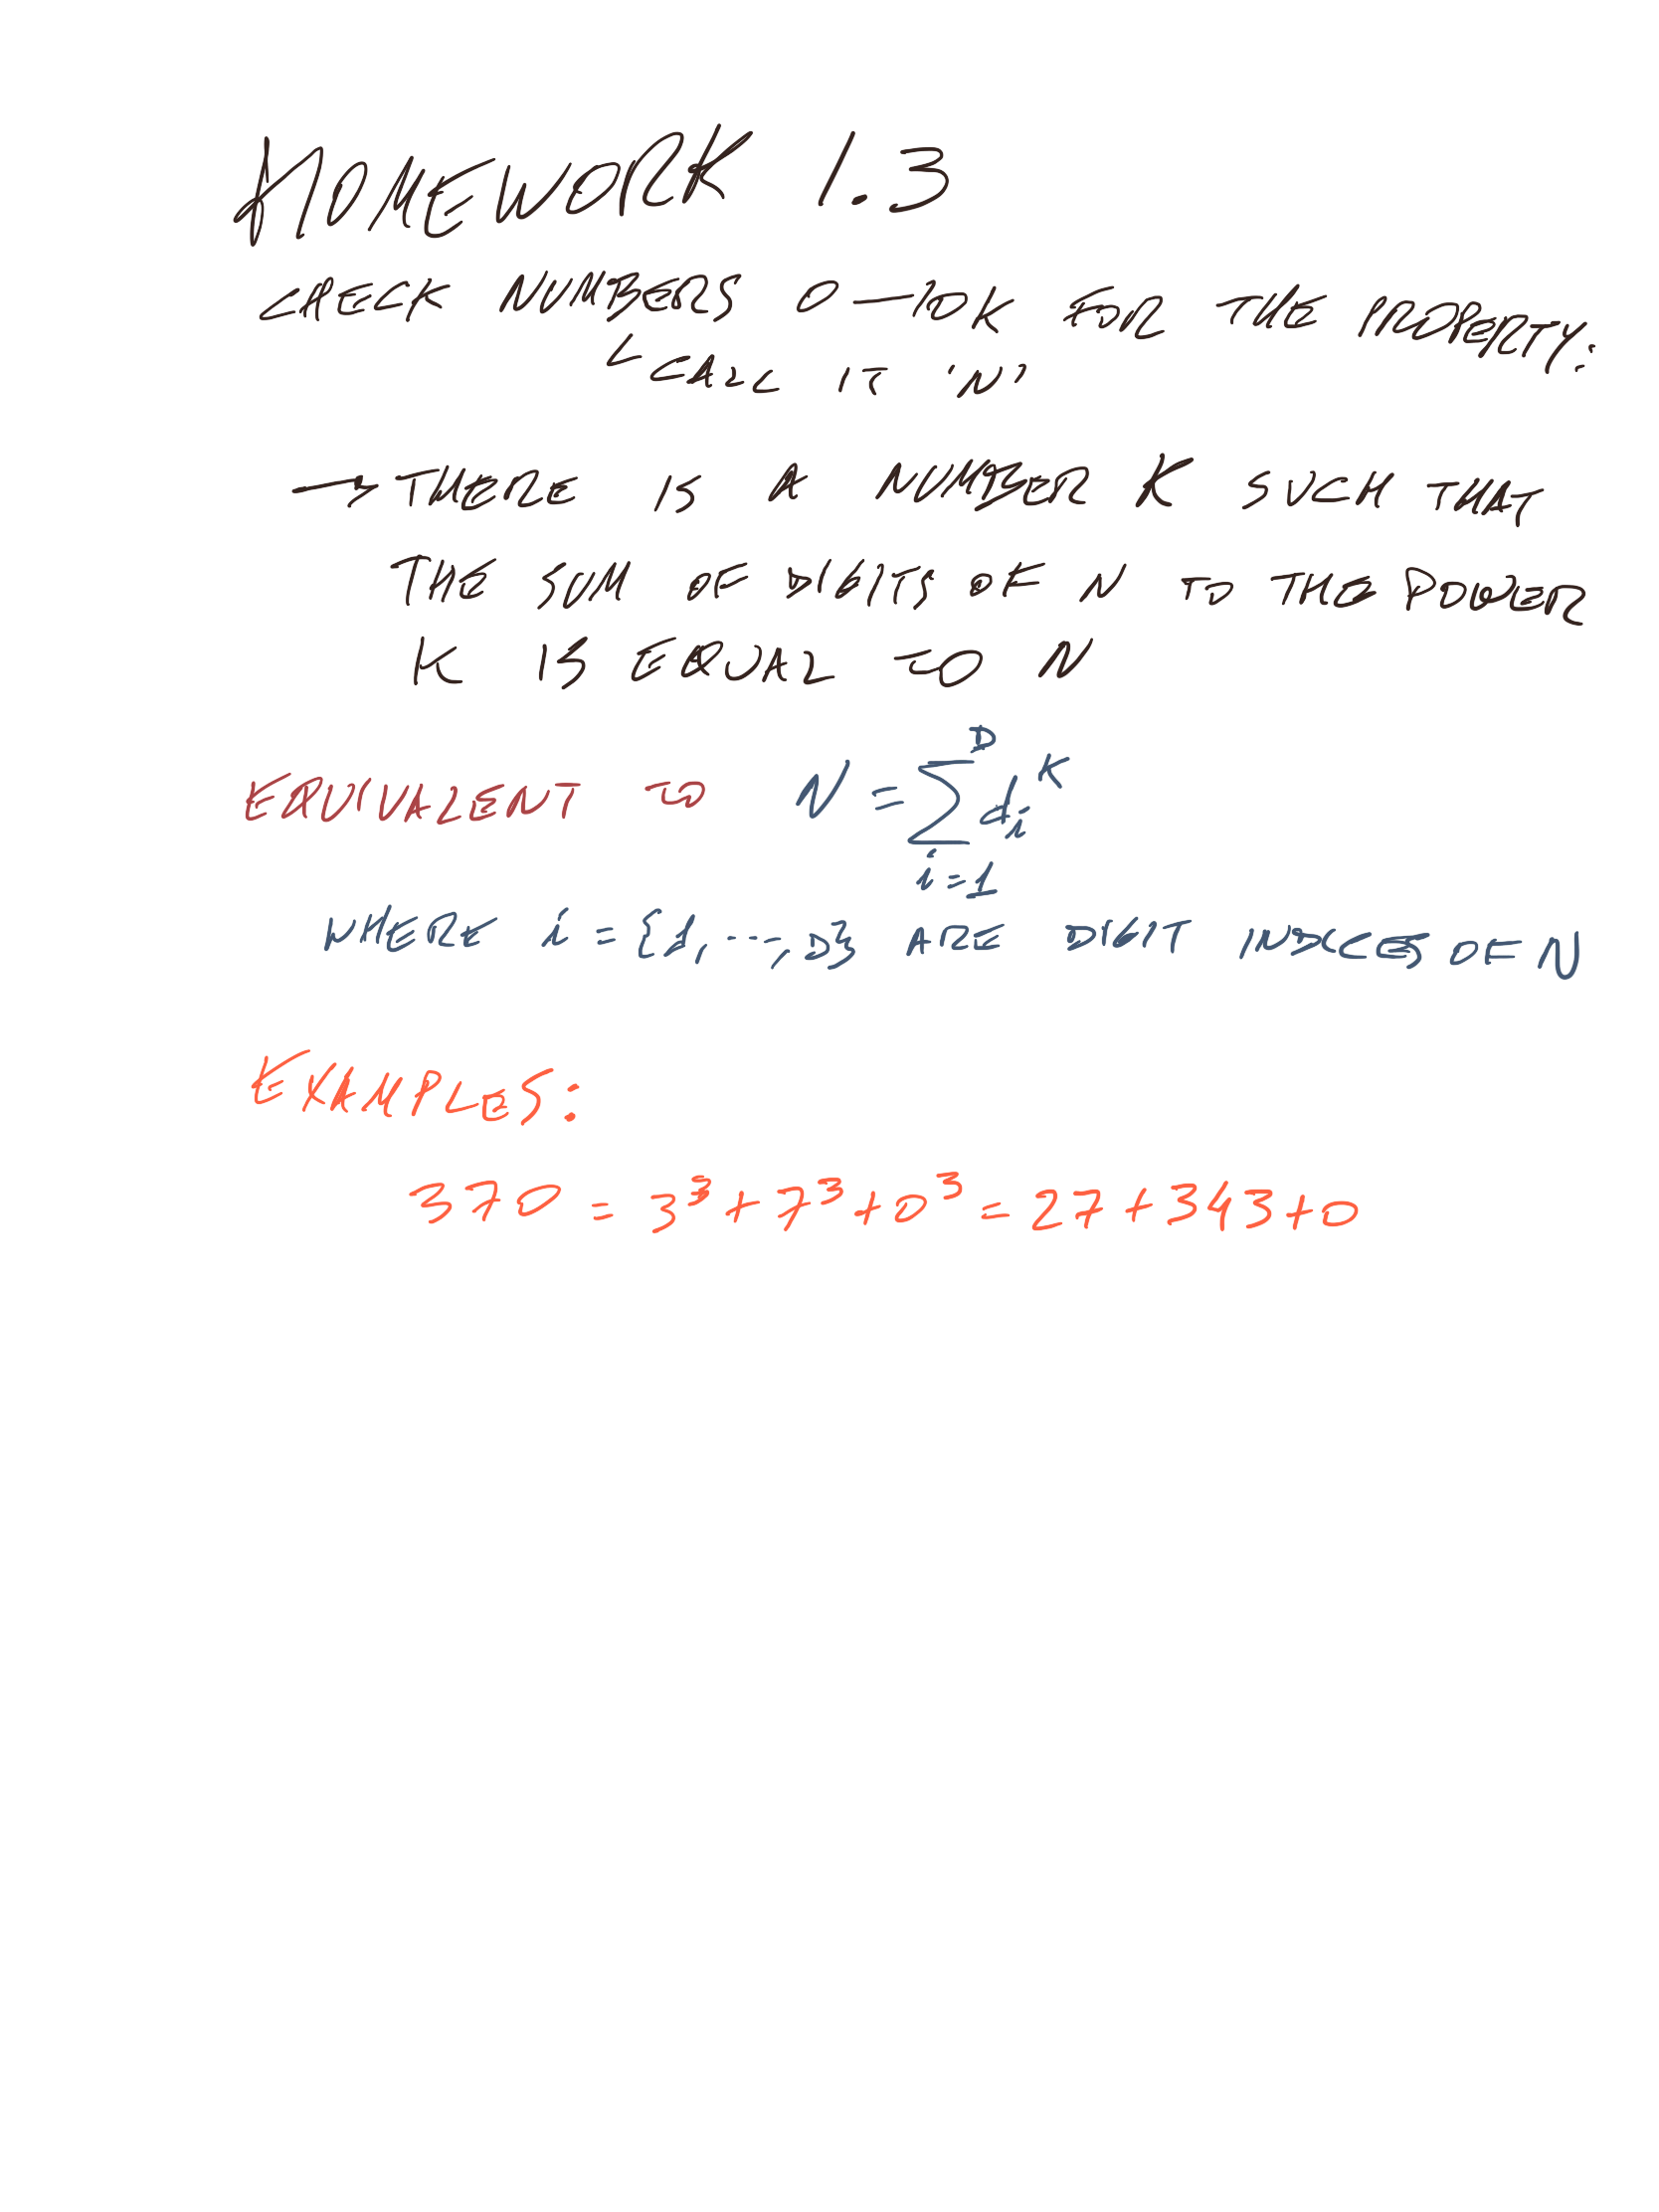 HOMEWORK 1.3
CHECK NUMBERS 0→10K FOR THE PROPERTY:
↳ CALL IT 'N'
→ THERE IS A NUMBER K SUCH THAT
THE SUM OF DIGITS OF N TO THE POWER
K IS EQUAL TO N
EQUIVALENT TO N = ∑_{i=1}^{D} d_i^K
WHERE i = {1, ..., D} ARE DIGIT INDICES OF N
EXAMPLES:
370 = 3³ + 7³ + 0³ = 27 + 343 + 0